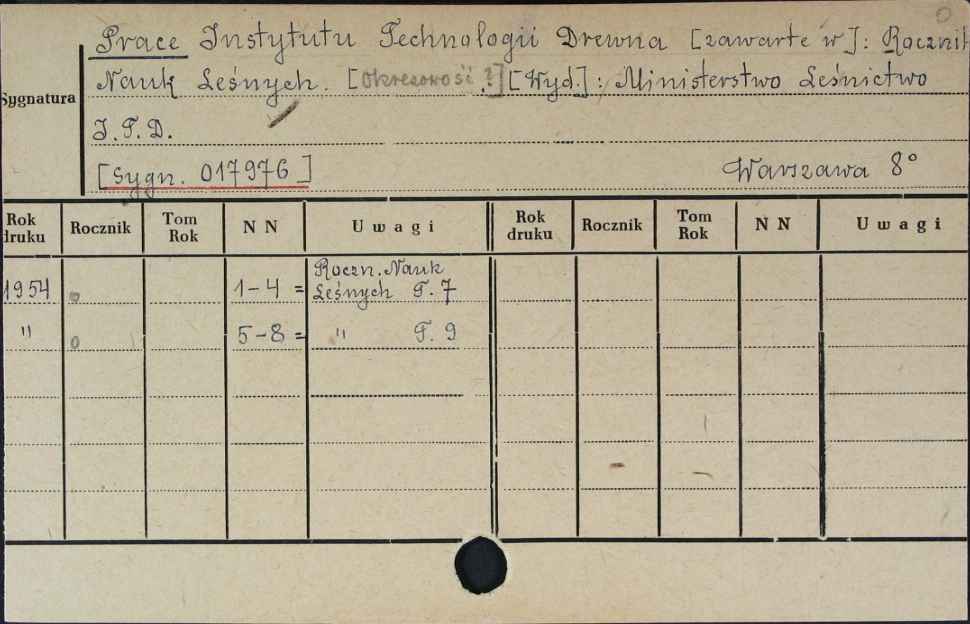 Prace Instytutu Technologii Drewna [zawarte w]: Rocznik
Nauk Leśnych. [Okresowość ?] [Wyd.]: Ministerstwo Leśnictwo
Sygnatura
I.T.D.
[Sygn. 017976] Warszawa 8°
Rok druku Rocznik Tom Rok N N Uwagi Rok druku Rocznik Tom Rok N N Uwagi
Roczn. Nauk
1954 0 1-4 = Leśnych T. 7
" 0 5-8 = " T. 9